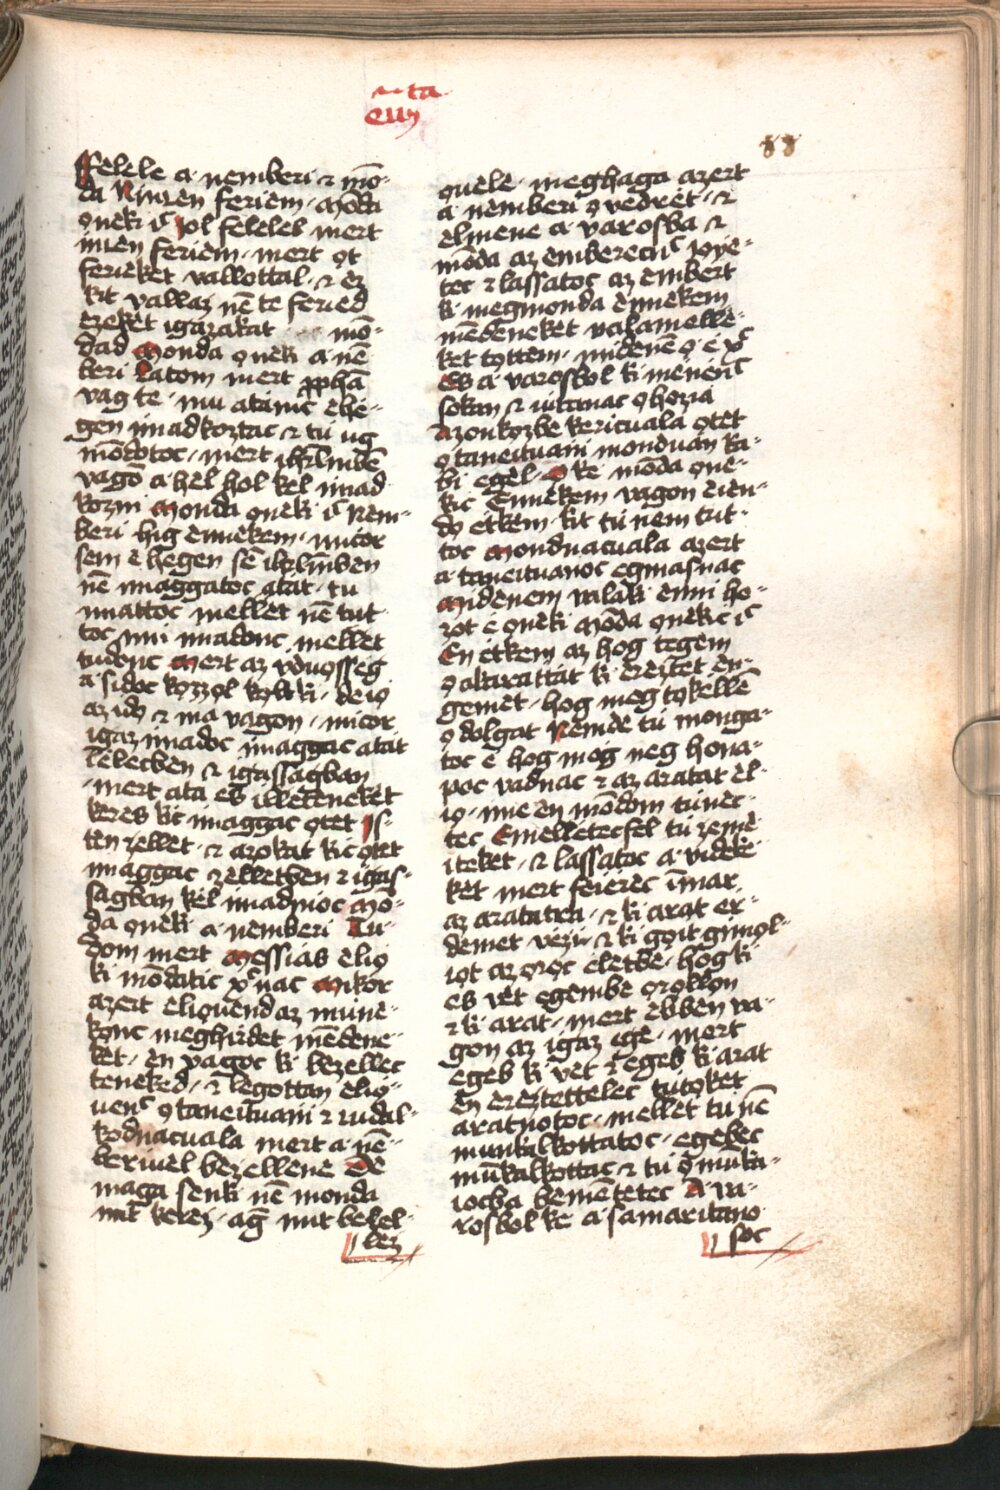 Felele a· nemberi ⁊ mō-
da Ninčen feriėm· Mōda
ọnėki iͨ Jol felelel mert
ninčen feriėm· mert ọt
feriėket vallottal· ⁊ ez
kit vallaz nē te feried
ezeket igazakat mō-
dad Monda ọnėki a· nē
beri Latom mert ꝓphā
vag te· mu atanc ė he-
gen imadkoztac ⁊ tu ug
mōdotoc· mert ihrl̄mbē
vagō a· hėl hol kel imad
kozni Monda ọnėki iͨ Nem-
beri hig ėnnėkem· micor
sem ė hegen sē ihrl̄mben
nē imaggatoc atat· tu
imattoc mellet nē tut
toc mu imadonc mellet
tudonc Mert az vduọsseg
a· sidoc kozzol vọlt ki· de iọ
az idọ ⁊ ma vagon· micor
igaz imadoc imaggac atāt
lelecben ⁊ igassagban
·mert ata es illeteneket
keres kic imaggac ọtet Is-
ten zellet· ⁊ azokat kic ọtet
imaggac zelletben ⁊ igas-
sagban kel imadnioc Mō-
da ọnėki a· nemberi Tu-
dom mert Messias eliọ
ki mōdatic xͨnac Mikor
azert eliọuend az mine-
kọnc meghirdet mēdene-
ket· ėn vagoc ki bezellec
teneked· ⁊ legottan eliọ-
uenͨ ọ taneituani ⁊ čudal-
kodnacuala mert a· nē-
beriuel bezellene De
maga senki nē monda
mit kerez· ag mit bezel-
lez
ọuele· meghaga azert
a· nemberi ọ vedrėt· ⁊
elmene a· varosba ⁊
mōda az embereknͨ Iọye-
tec ⁊ lassatoc az embert
ki megmonda ėnnėkem
mēdeneket valamelle-
ket tọttem· minenē ọ e xͨ
Es a· varosbol ki menenͨ
sokan ⁊ iutanac ọ hozia
Azonkọzbe kericuala ọtet
ọ taneituani monduan ka-
bi egėl· Ọ ke· mōda ọne-
kic Ennėkem vagon eien-
dọ etkėm· kit tu nem tut-
toc Mondnacuala azert
a· taneituanoc egmasnac
Midenem valaki ėnni ho-
zot e ọnėki Mōda ọnėkic iͨ
En etkem az hog tegem
ọ akarattat ki ereztet ėn-
gemet· hog meg tọkellē
ọ dolgat Nemde tu monga-
toc ė hog mėg nėg hona-
poc vadnac ⁊ az aratat ėl-
iọ· ime ėn mōdom tunec-
tec Emelletec fel tu zemė
iteket· ⁊ lassatoc a· videke
ket mert feierec īmar
az aratatra· ⁊ ki arat er-
demet vezū ⁊ ki gọit gimọl-
čọt az ọrọc eletbe· hog ki
es vet egembe ọrọllọn
⁊ ki arat· mert ebben va-
gon az igaz ege· mert
egeb ki vet ⁊ egeb ki arat
En ereztettelec tutọket
aratnotoc· mellet tu nē
munkalkottatoc· egebec
mūkalkottac ⁊ tu ọ mūka-
iocba bemētetec A· va-
rosbol ke a· samaritano-
soc